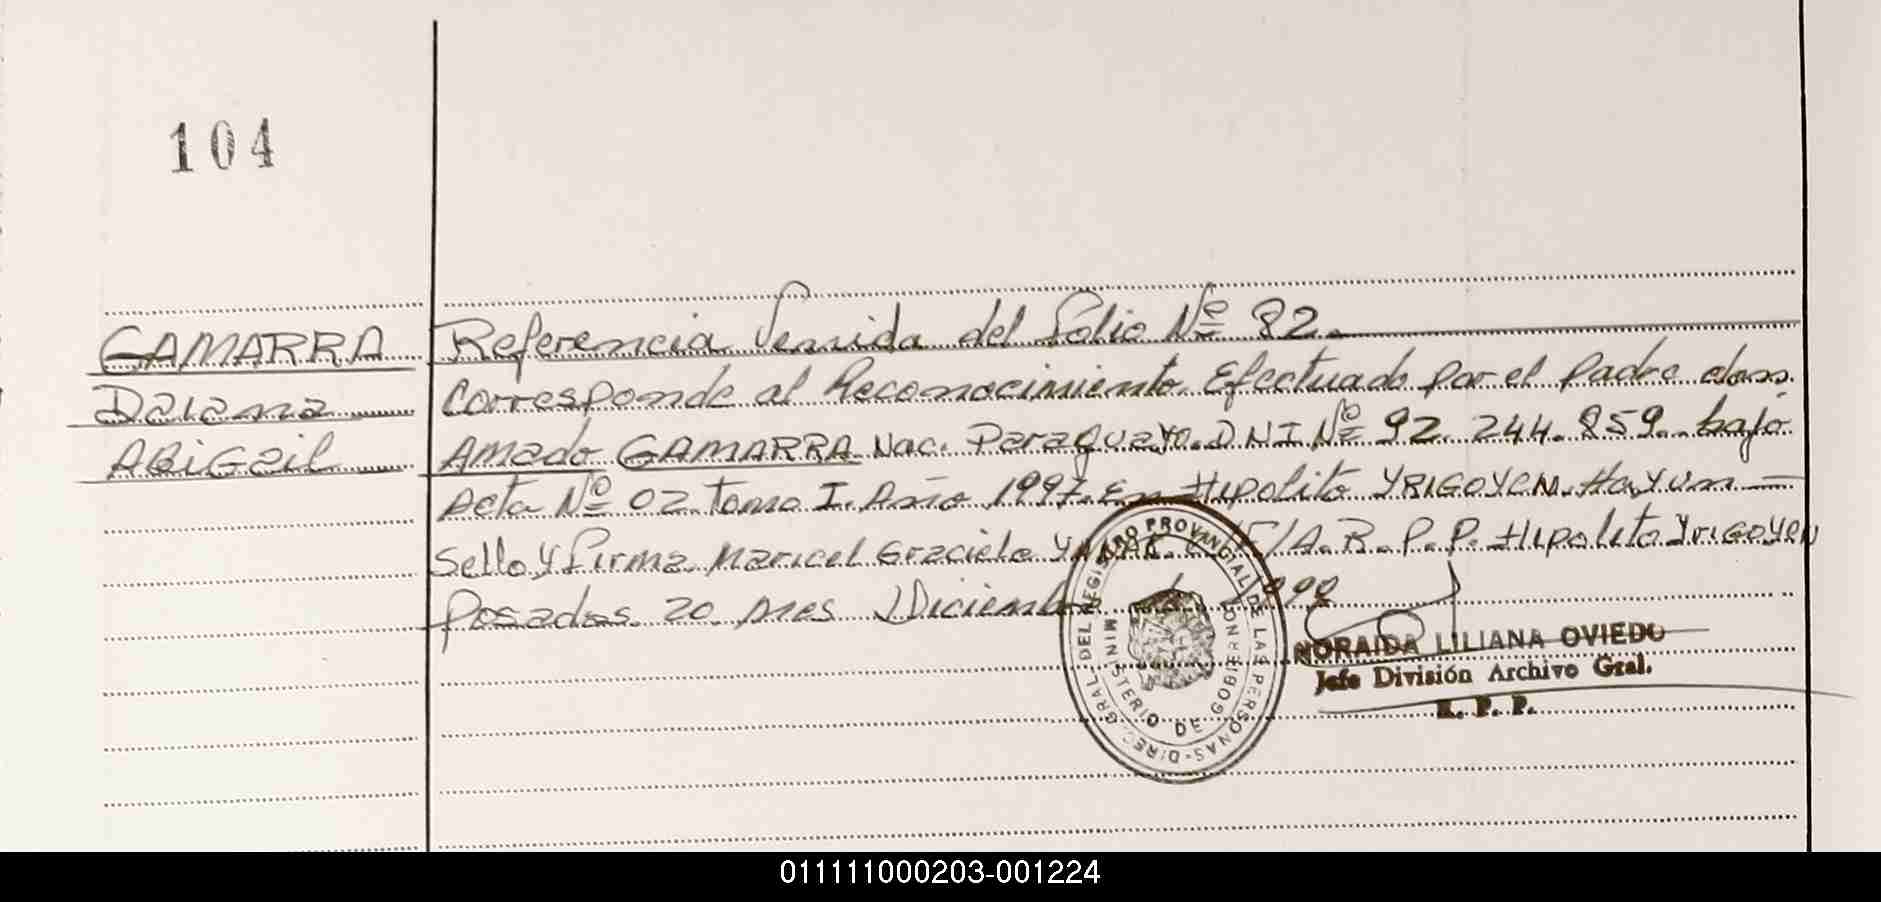 104
GAMARRA
Daiana
ABiGail
Referencia Venida del folio Nº 82.
Corresponde al Reconocimiento. Efectuado por el padre don.
Amado GAMARRA Nac. Paraguayo. DNI Nº 92. 244. 859. bajo
Acta Nº 02. Tomo I. Año 1997. En Hipolito YRIGOYEN. Hay un
Sello y firma. Maricel Graciela A. R. P. P. Hipolito YRIGOYEN
Posadas. 20. mes Diciembre
DIREC. GRAL. DEL REGISTRO PROVINCIAL DE LAS PERSONAS
MINISTERIO DE GOBIERNO
NORAIDA LILIANA OVIEDO
Jefe División Archivo Gral.
R. P. P.
011111000203-001224